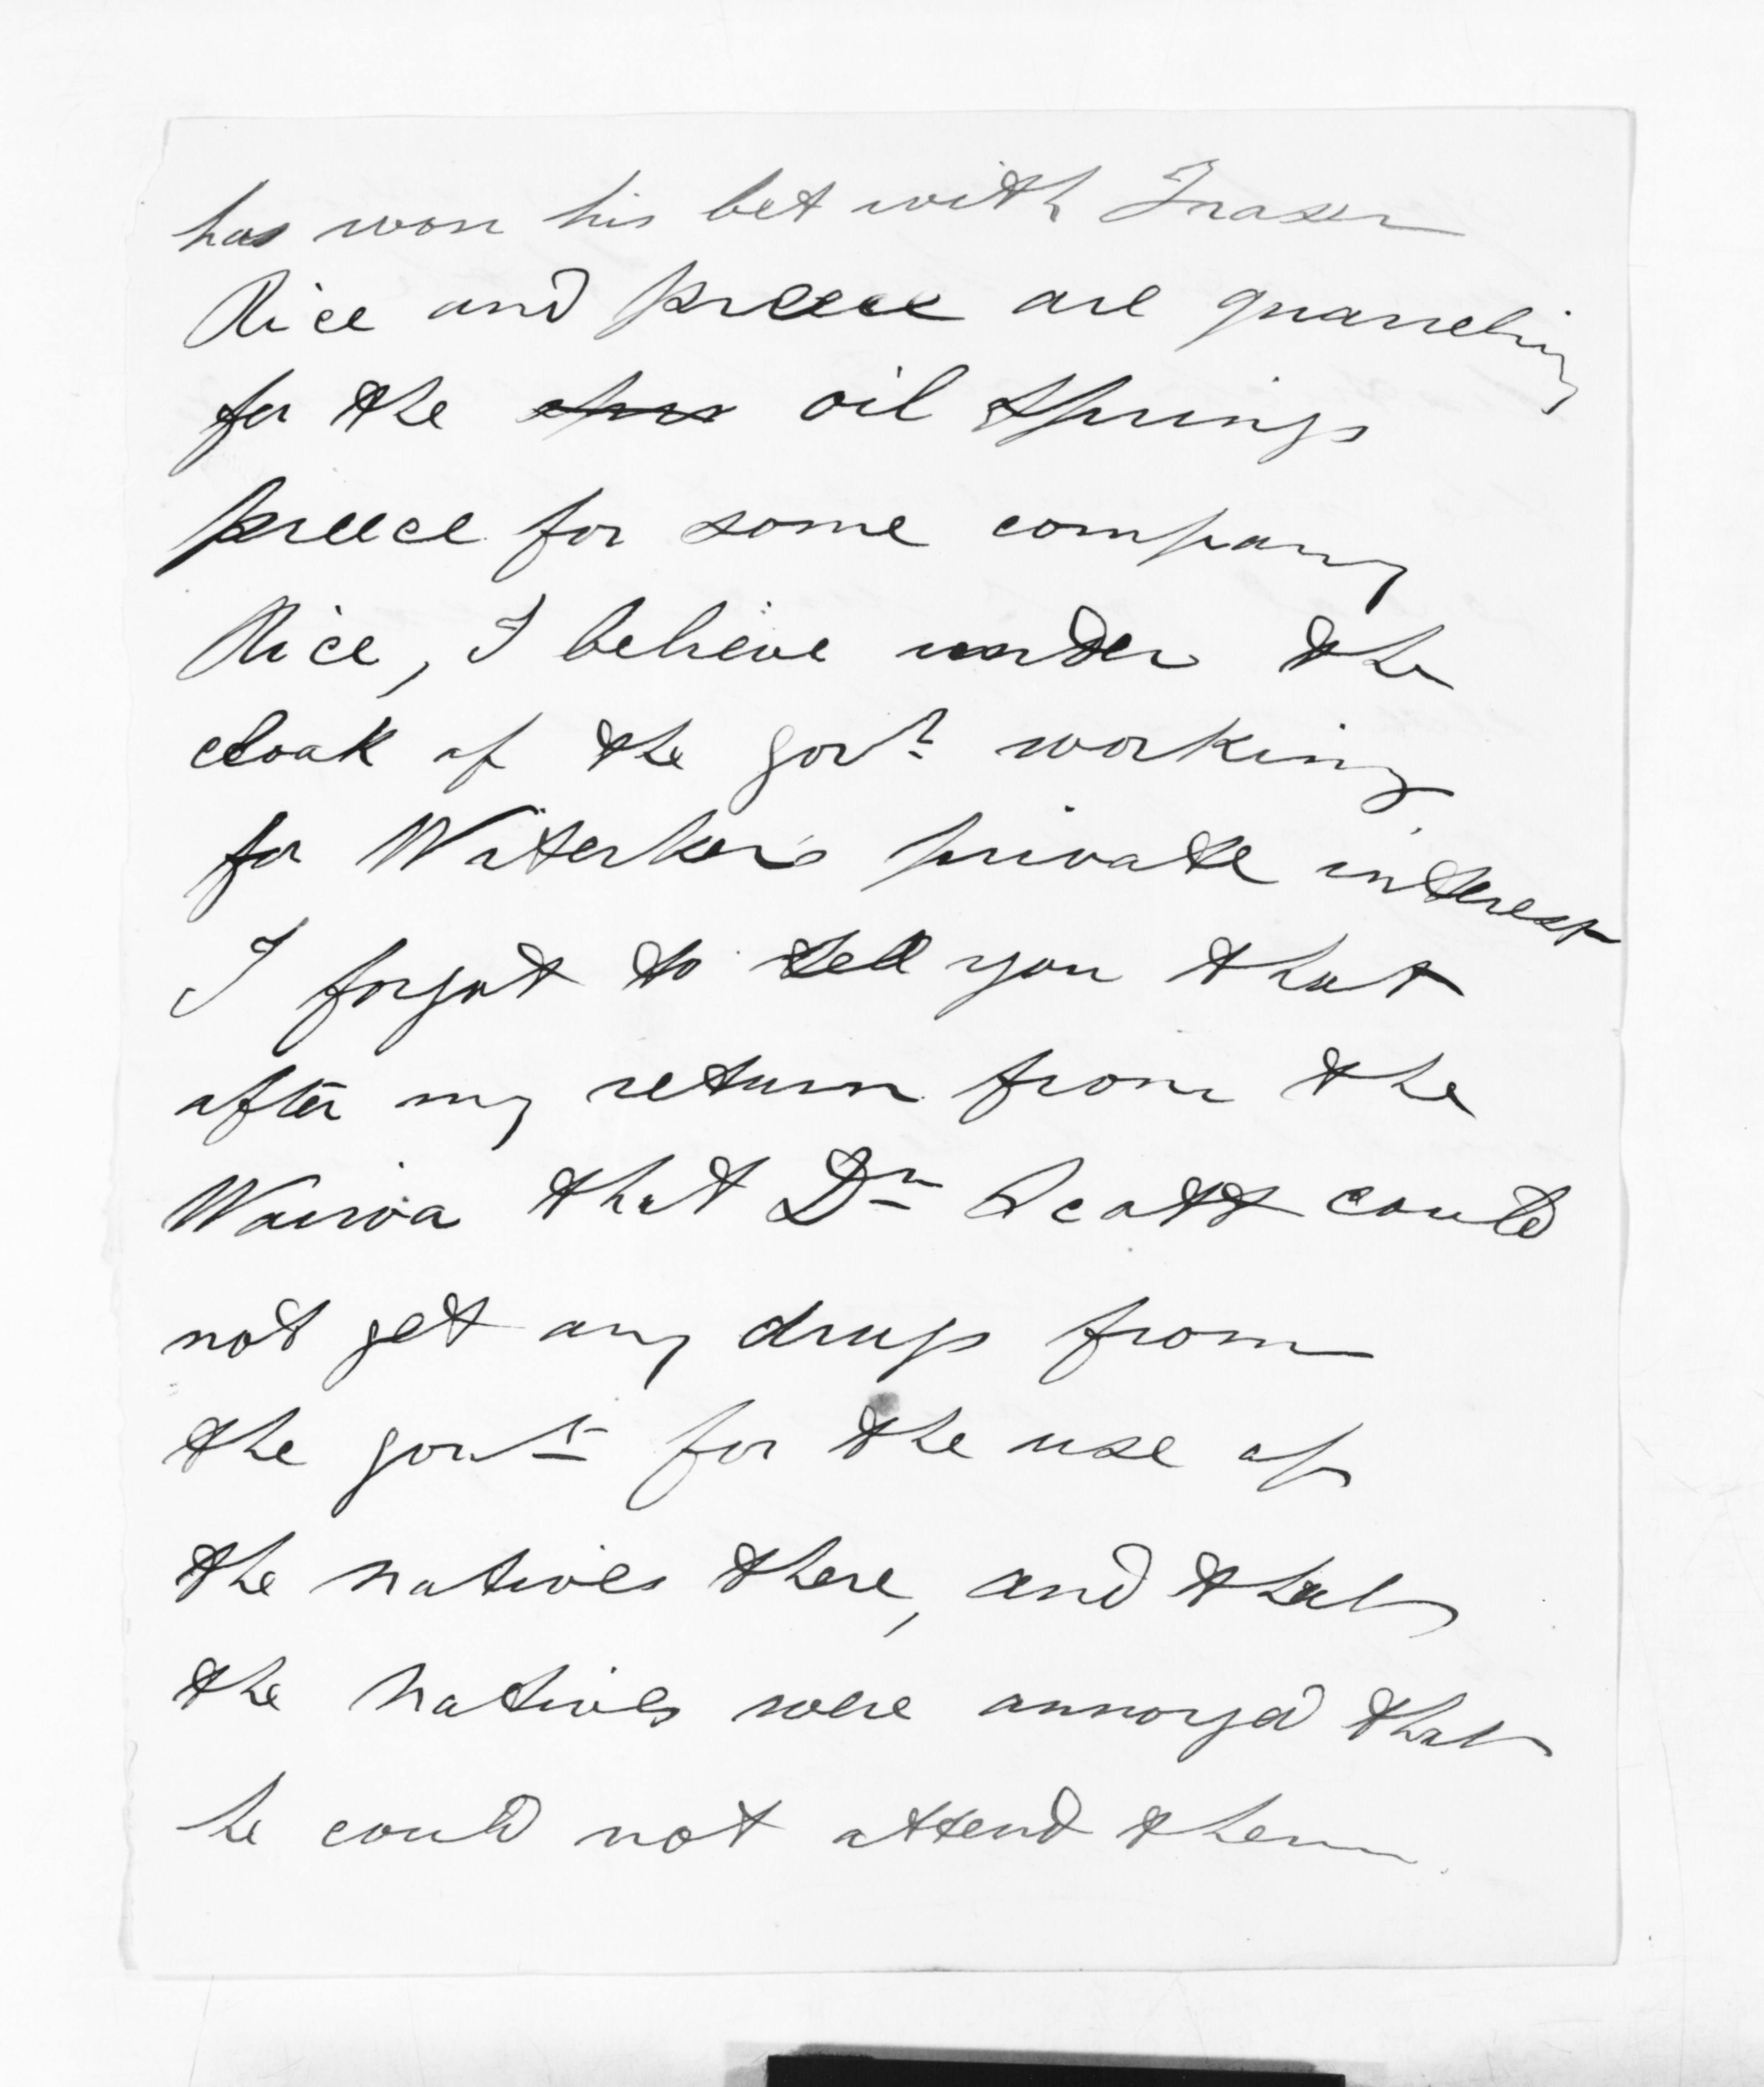 has won his bet with Fraser
Rice and preece are quarreling
for the oil springs
preece for some company
Rice, I believe under the
cloak of the govt working
for Witerkers private interest
I forgot to tell you that
after my return from the
Wairoa that Dr Scott could
not get any drugs from
the govt for the use of
the natives there, and that
the natives were annoyed that
he could not attend them.